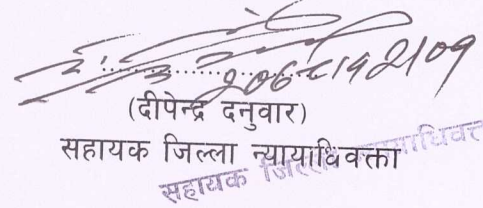 (दीपेन्द्र दनुवार)
सहायक जिल्ला न्यायाधिवक्ता
सहायक जिल्ला न्यायाधिवक्ता